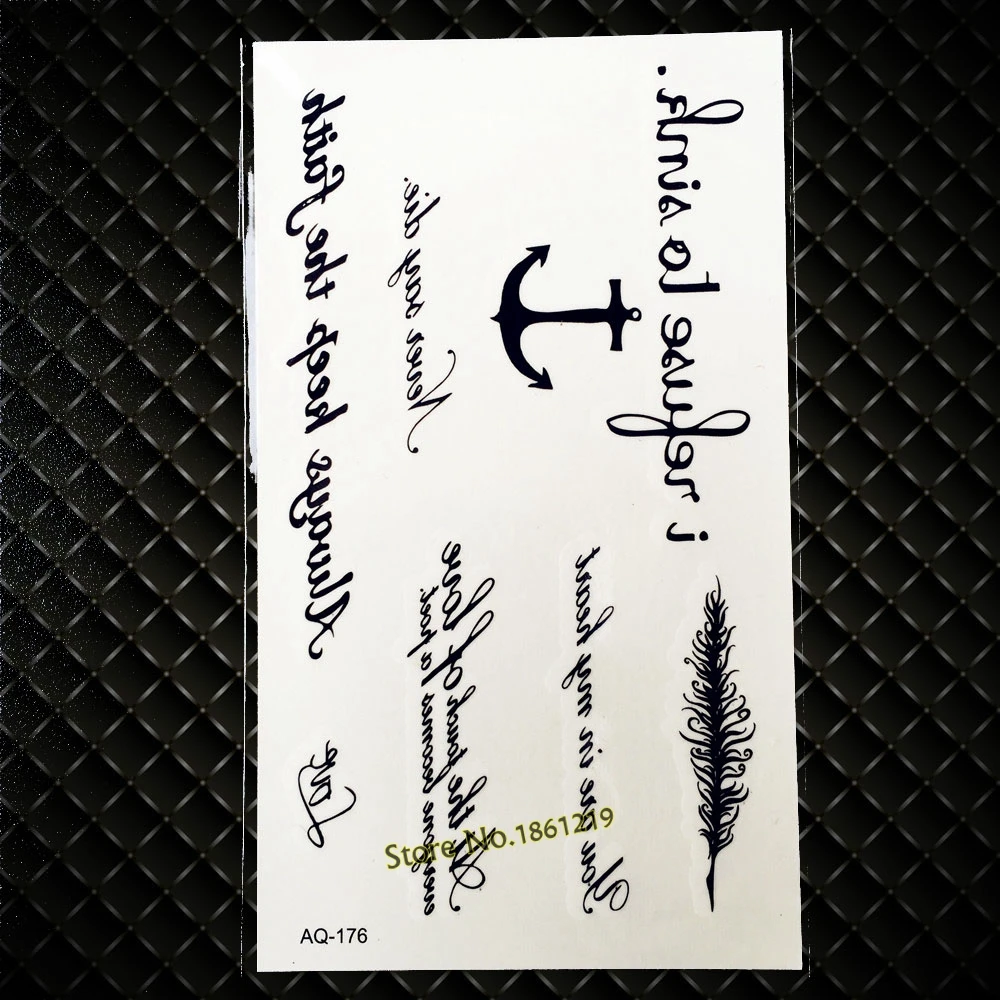 i refuse to sink.
Never say die.
Always keep the Faith
You are in my heart
At the touch of love
everyone becomes a poet
Love
Store No.1861219
AQ-176